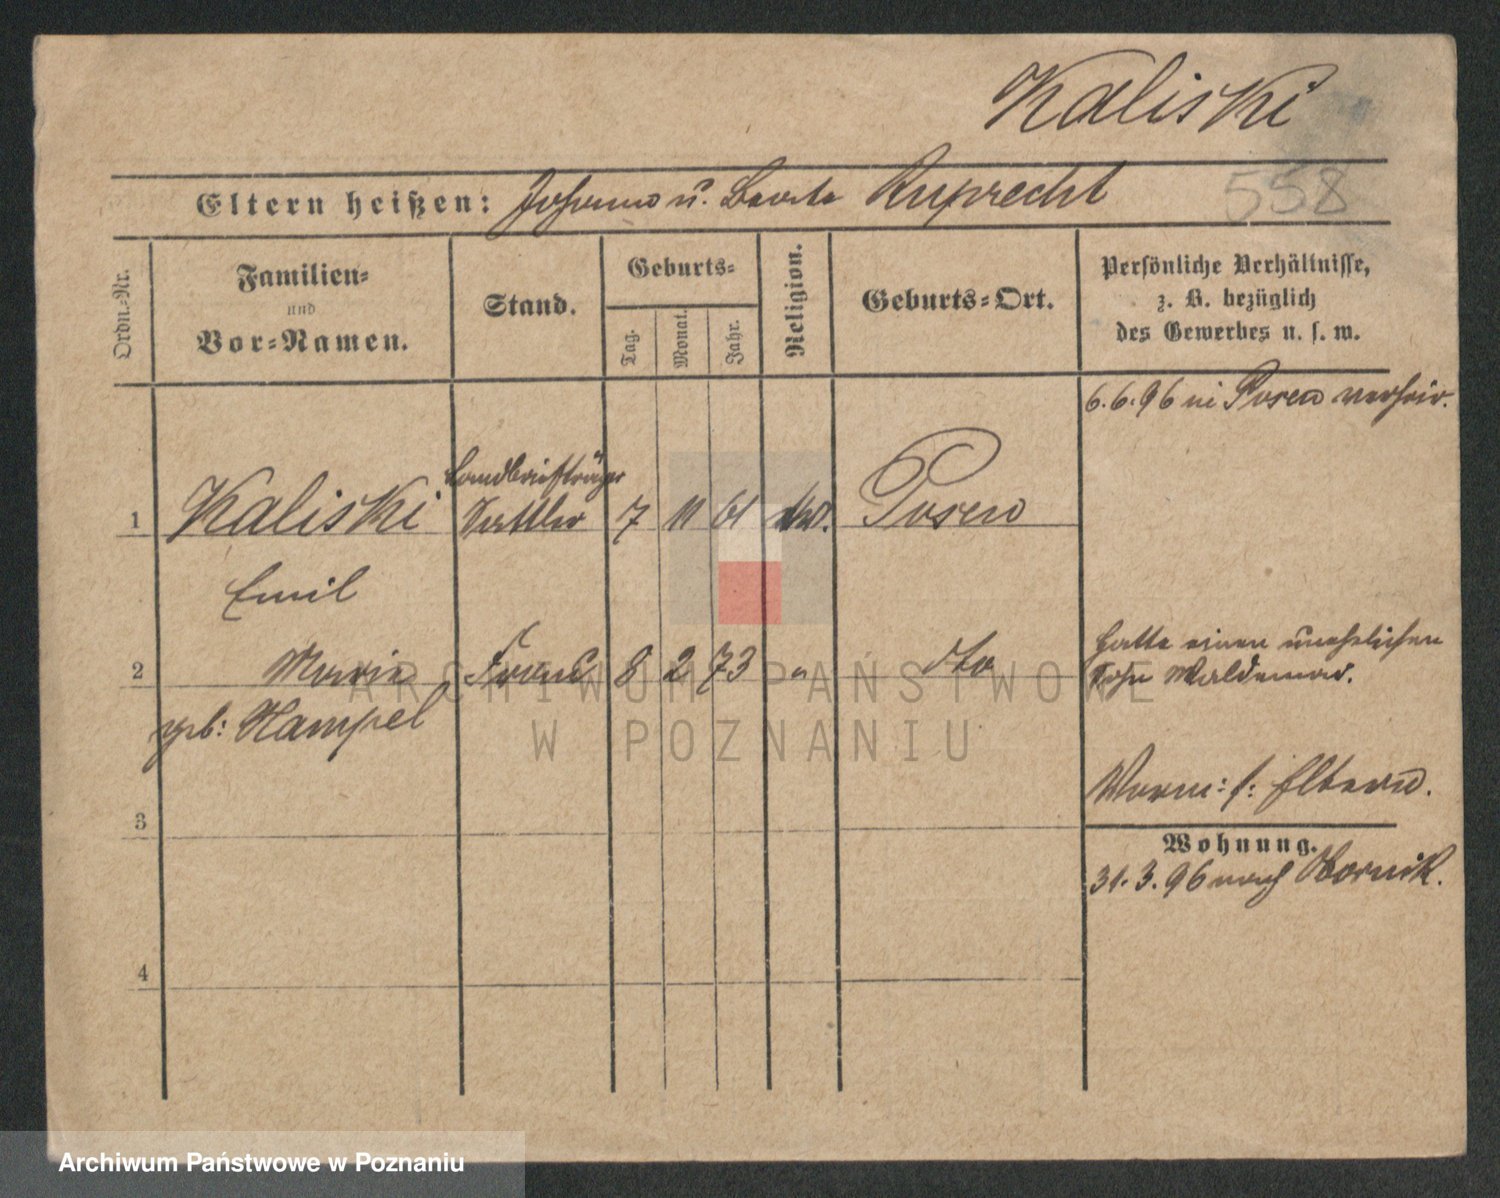 Kaliski
558
Eltern heißen: Johann u. Beate Ruprecht
Ordn.-Nr.
Familien-
und
Vor-Namen.
Stand.
Geburts-
Tag.
Monat.
Jahr.
Religion.
Geburts-Ort.
Persönliche Verhältnisse,
z. B. bezüglich
des Gewerbes u. s. w.
6.6.96 in Posen verheir.
Landbriefträger
1 Kaliski Sattler 7 11 61 Posen
Emil
2 Marie Frau 8 2 73 " dto
geb: Hampel
hatte einen unehelichen
Sohn Waldemar.
Vorm: s: Eltern.
3
Wohnung.
31.3.96 nach Obornik.
4
ARCHIWUM PAŃSTWOWE
W POZNANIU
Archiwum Państwowe w Poznaniu